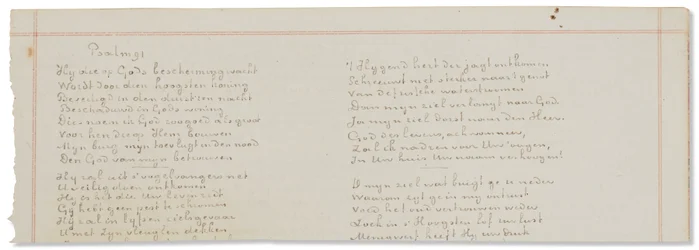 Psalm 91
Hy die op Gods bescherming wacht
Wordt door den hoogsten Koning
Beveiligd in den duist'ren nacht
Beschaduwd in Gods woning
Dies noem ik God zoo goed als groot
Voor hen die op Hem bouwen
Myn burg myn toevlugt in den nood
Den God van myn betrouwen
Hy zal uit 's vogelvangers net
U veilig doen ontkomen
Hy is het die Uw leven redt
Gy hebt geen pest te schromen
Hy zal in lyf en zielsgevaar
U met Zyn vleug'len dekken
't Hygend hert der jagt ontkomen
Schreeuwt niet sterker naar 't genot
Van de frissche waterstroomen
Dan myn ziel verlangt naar God
Ja myn ziel dorst naar den Heer
God des levens, ach wanneer
Zal ik nad'ren voor Uw oogen,
In Uw huis Uw naam verhoogen!
O myn ziel wat buigt ge u neder
Waarom zyt ge in my ontrust
Voed het oud vertrouwen weder
Zoek in 's Hoogsten lof uw lust
Menigwerf heeft Hy uw druk